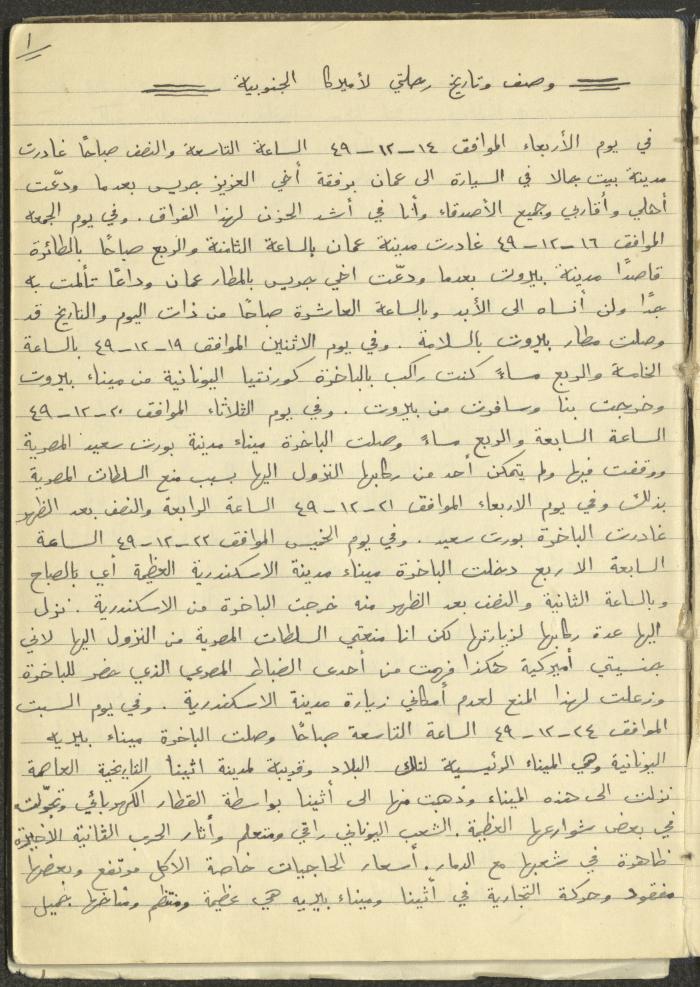 ١
وصف وتاريخ رحلتي لأميركا الجنوبية
في يوم الأربعاء الموافق ١٤-١٢-٤٩ الساعة التاسعة والنصف صباحًا غادرت
مدينة بيت جالا في السيارة الى عمان برفقة أخي العزيز جريس بعدما ودّعت
أهلي وأقاربي وجميع الأصدقاء وأنا في أشد الحزن لهذا الفراق. وفي يوم الجمعة
الموافق ١٦-١٢-٤٩ غادرت مدينة عمان بالساعة الثامنة والربع صباحًا بالطائرة
قاصدًا مدينة بيروت بعدما ودّعت اخي جريس بالمطار عمان وداعًا تألمت به
جدًا ولن أنساه الى الأبد وبالساعة العاشرة صباحًا من ذات اليوم والتاريخ قد
وصلت مطار بيروت بالسلامة. وفي يوم الاثنين الموافق ١٩-١٢-٤٩ بالساعة
الخامسة والربع مساءً كنت راكب بالباخرة كورنتيا اليونانية من ميناء بيروت
وخرجت بنا وسافرت من بيروت. وفي يوم الثلاثاء الموافق ٢٠-١٢-٤٩
الساعة السابعة والربع مساءً وصلت الباخرة ميناء مدينة بورت سعيد المصرية
ووقفت فيها ولم يتمكن أحد من ركابها النزول اليها بسبب منع السلطات المصرية
بذلك وفي يوم الاربعاء الموافق ٢١-١٢-٤٩ الساعة الرابعة والنصف بعد الظهر
غادرت الباخرة بورت سعيد. وفي يوم الخميس الموافق ٢٢-١٢-٤٩ الساعة
السابعة الا ربع دخلت الباخرة ميناء مدينة الاسكندرية العظيمة أي بالصباح
وبالساعة الثانية والنصف بعد الظهر منه خرجت الباخرة من الاسكندرية. نزل
اليها عدة ركابها لزيارتها لكن انا منعتني السلطات المصرية من النزول اليها لاني
جنسيتي أميركية هكذا فهمت من أحدى الضباط المصري الذي حضر للباخرة
وزعلت لهذا المنع لعدم أمكاني زيارة مدينة الاسكندرية. وفي يوم السبت
الموافق ٢٤-١٢-٤٩ الساعة التاسعة صباحًا وصلت الباخرة ميناء بيريه
اليونانية وهي الميناء الرئيسية لتلك البلاد وقريبة لمدينة اثينا التاريخية العاصمة
نزلت الى هذه الميناء وذهبت منها الى أثينا بواسطة القطار الكهربائي وتجوّلت
في بعض شوارعها العظيمة. الشعب اليوناني راقي ومتعلم وأثار الحرب الثانية الاخيرة
ظاهرة في شعبها مع الدمار. أسعار الحاجيات خاصة الاكل مرتفع وبعضها
مفقود وحركة التجارية في أثينا وميناء بيريه هي عظيمة ومنتظم ومناخها جميل